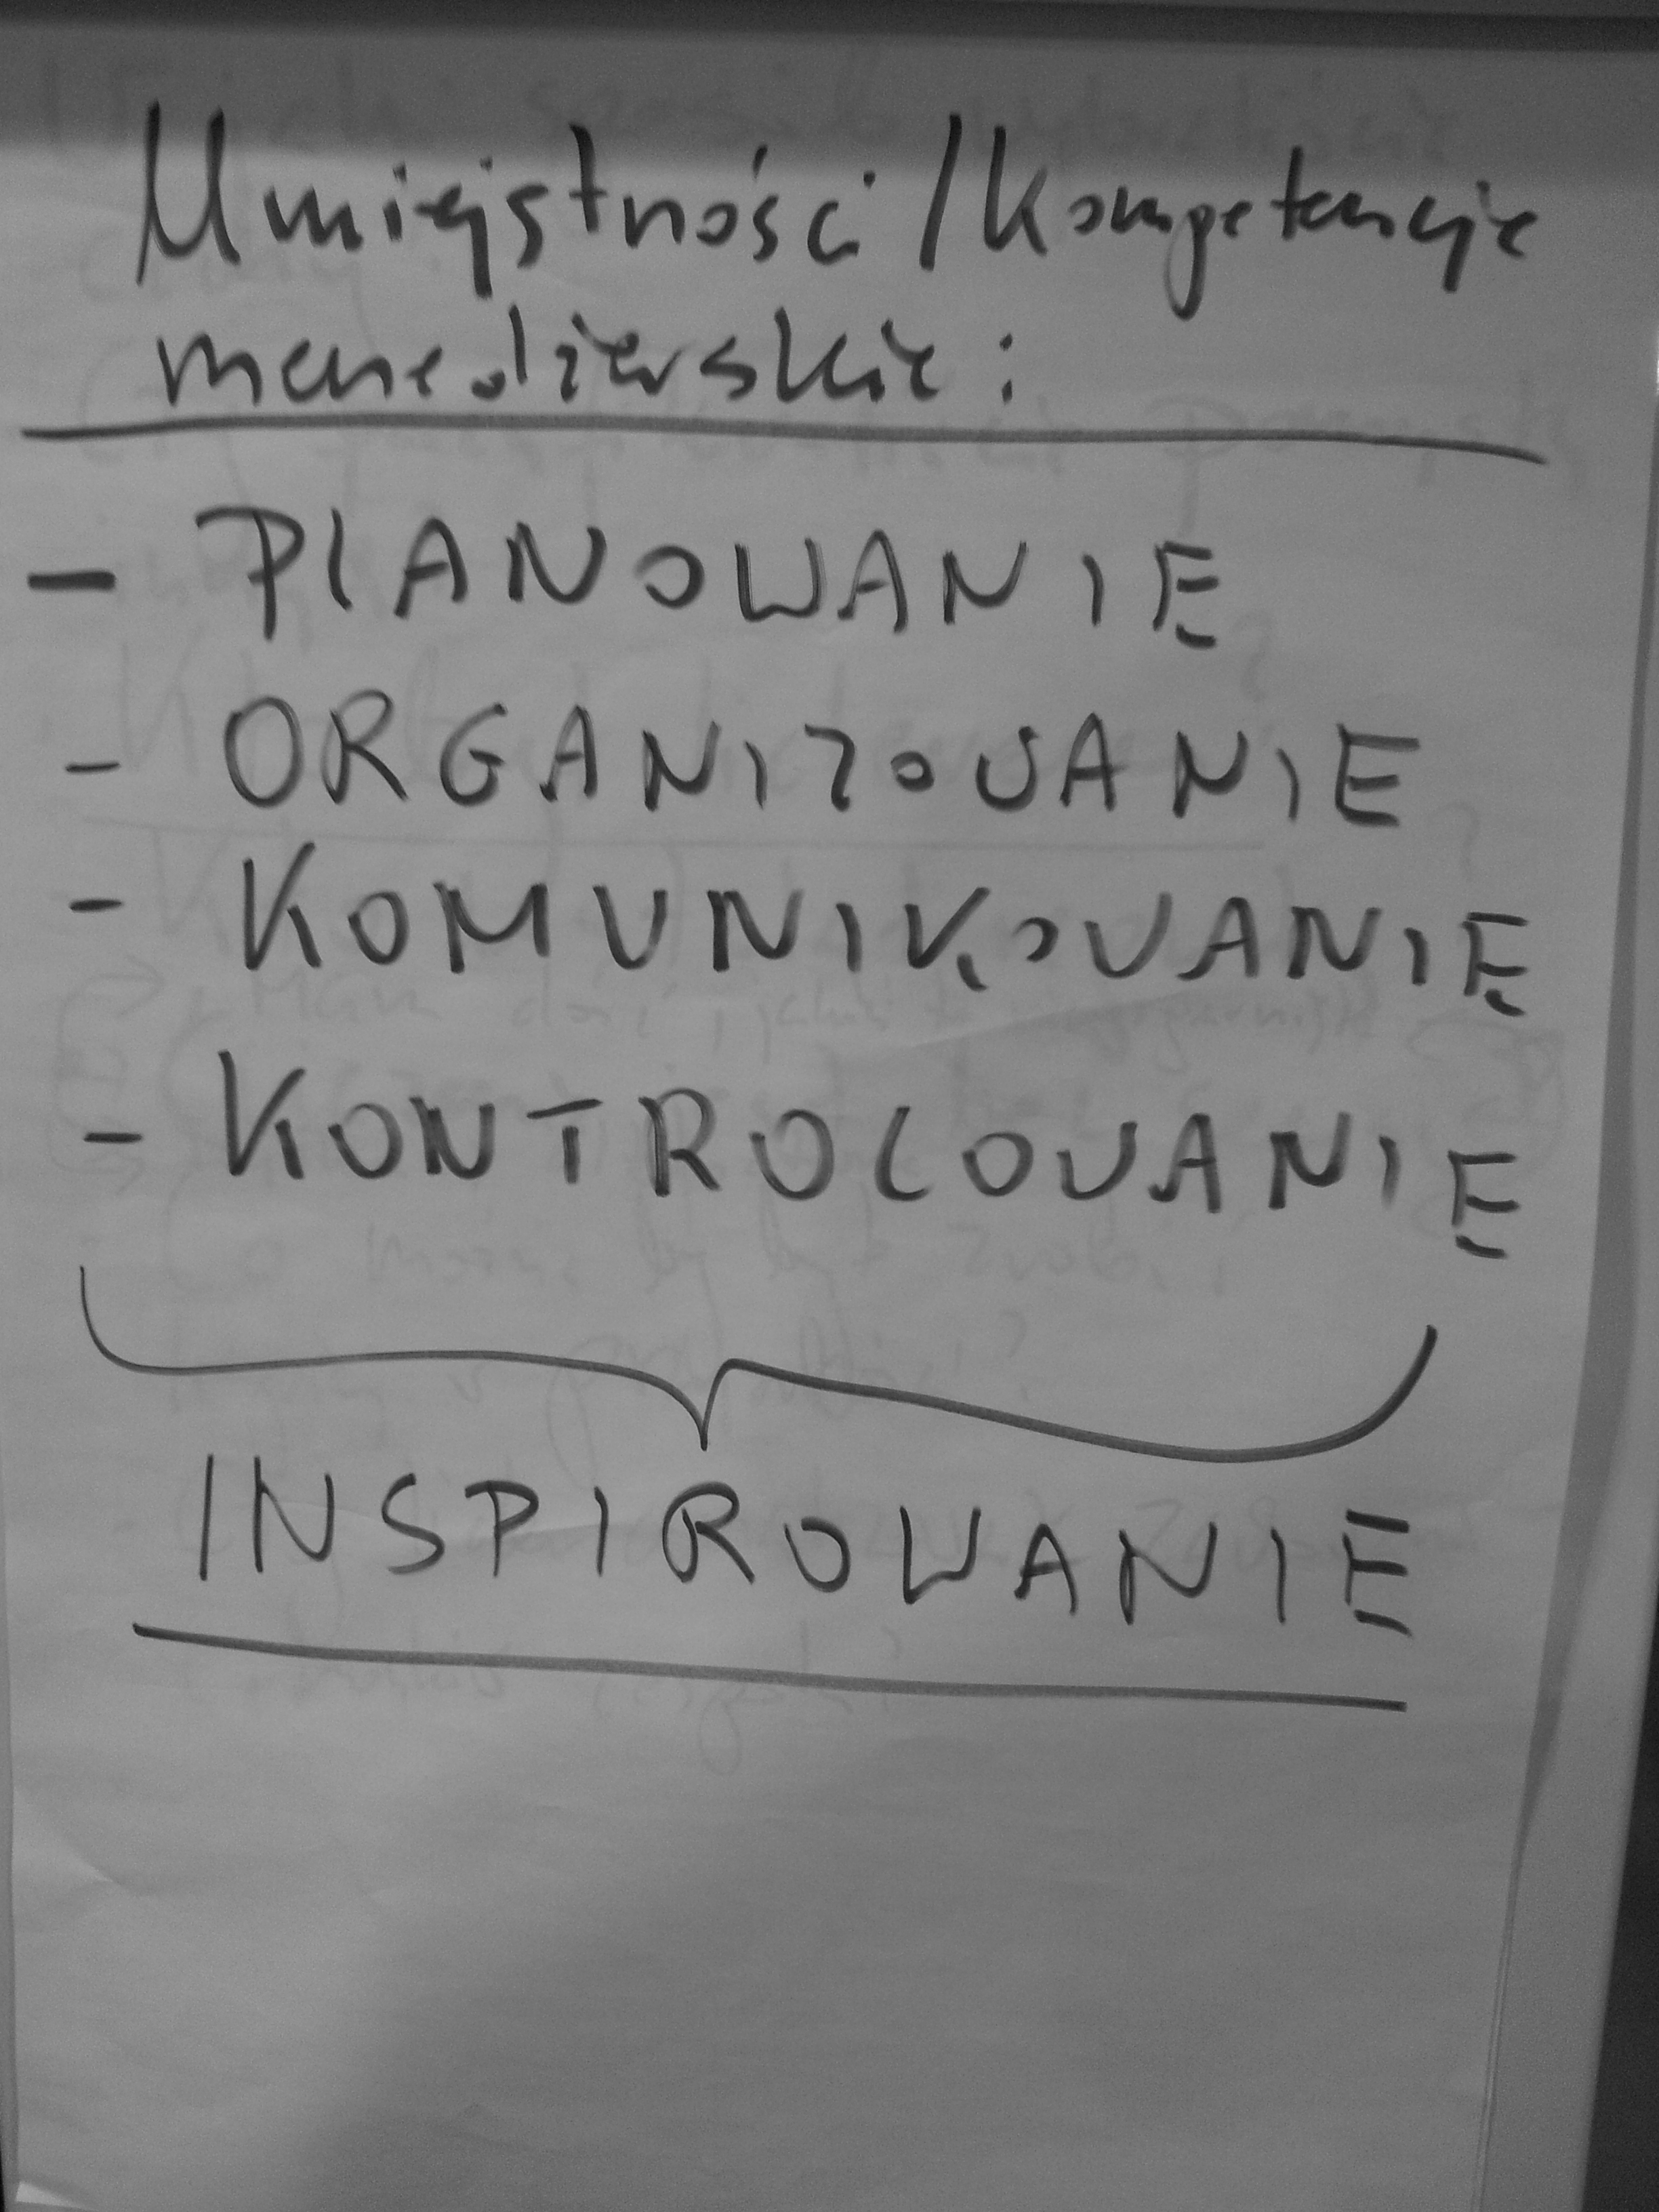 Umiejętności / Kompetencje
menedżerskie:
- PLANOWANIE
- ORGANIZOWANIE
- KOMUNIKOWANIE
- KONTROLOWANIE
INSPIROWANIE